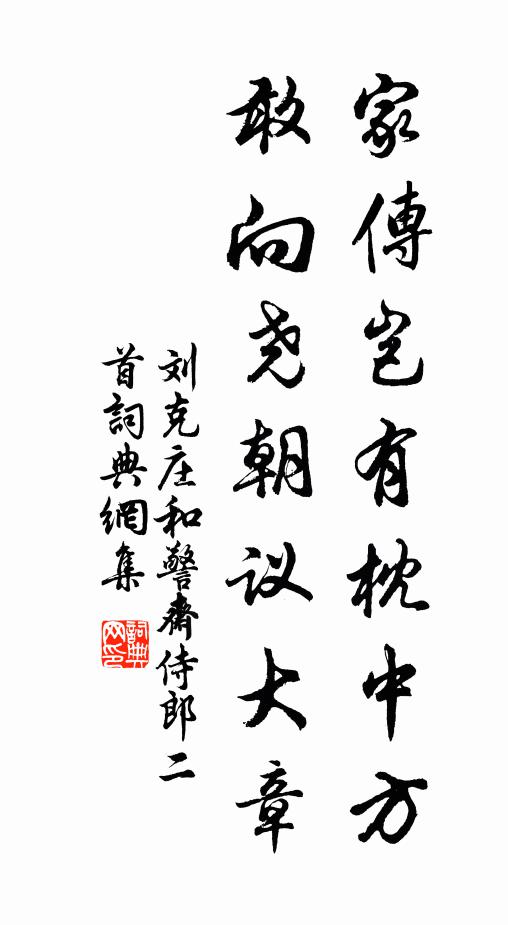 家傳岂有枕中方
敢向尧朝议大章
刘克庄和警齋侍郎二
首詞典網集
詞典网印